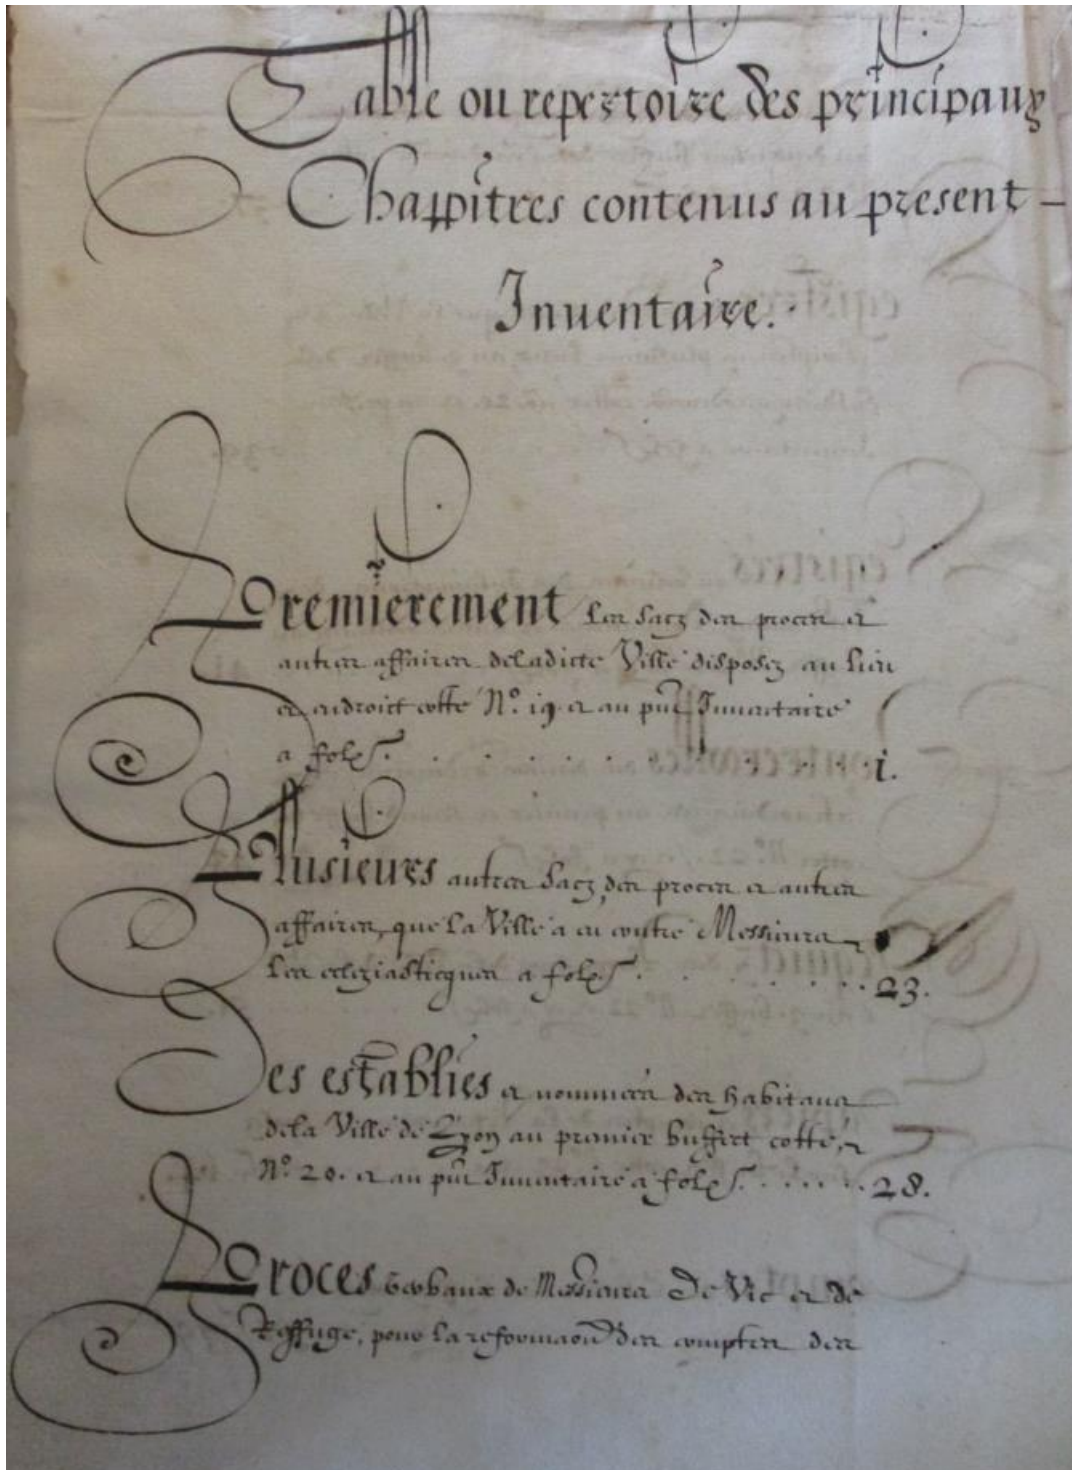 Table ou repertoire des principaux
Chappitres contenus au present –
Inuentaire.
Premierement Les sacz des proces et
autres affaires de ladicte Ville disposez au lieu
et endroict cotté N.º 19. et au pñt Inuentaire
a fol. . . . . . . . . . i.
Plusieurs autres sacz, des proces et autres
affaires, que la Ville a eu contre Messieurs
Les eclesiasticques a fol. . . . . . 23.
Des establies et nommées des habitans
de la Ville de Lyon au premier buffect cotté
N.º 20. et au pñt Inuentaire a fol. . . . . . 28.
Proces verbaux de Messieurs De Vic et de
Reffuge, pour la reformaõn des comptes des